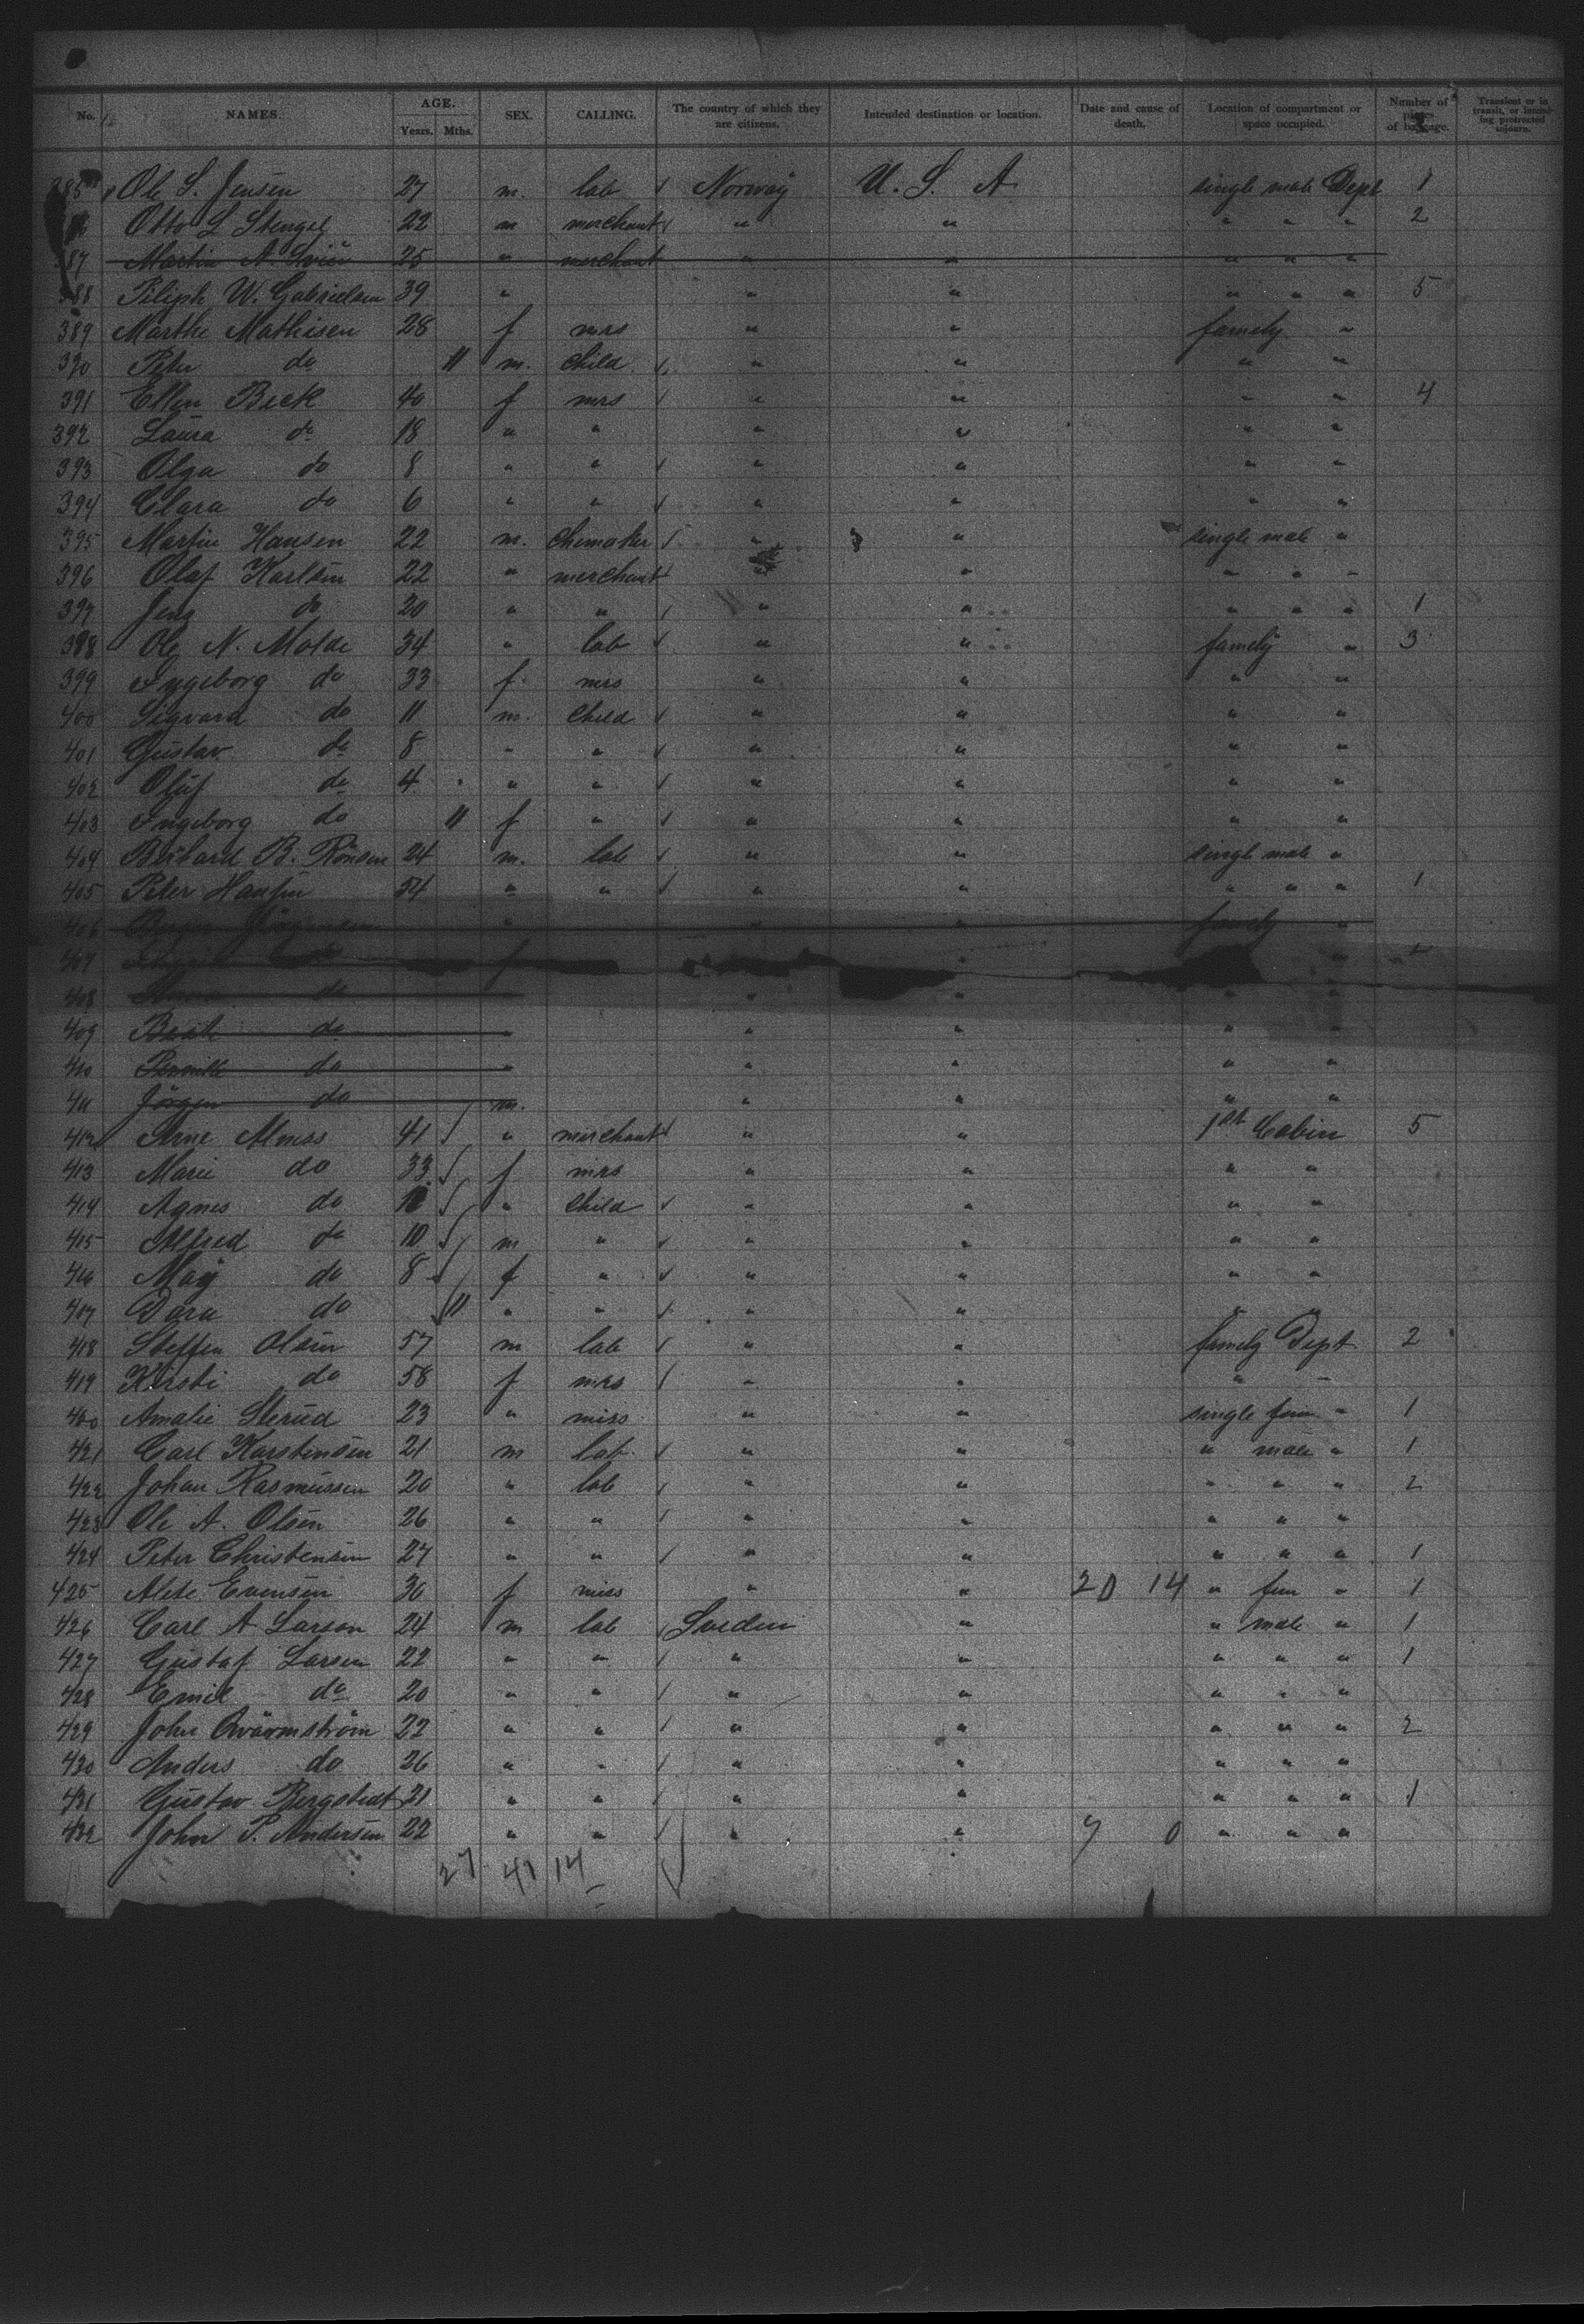 No. NAMES. AGE. Years. Mths. SEX. CALLING. The country of which they are citizens. Intended destination or location. Date and cause of death. Location of compartment or space occupied. Number of pieces of baggage. Transient or in transit, or intending protracted sojourn.
385 Ole S. Jensen 27 m. lab Norway U. S. A single male Dept 1
Otto L Stengel 22 m merchant " " " " " 2
387 Martin A. 25 " merchant " " " " "
388 Filiph W. Gabrielsen 39 " " " " " " 5
389 Marthe Mathisen 28 f mrs " " famely "
390 Peter do 11 m. child " " " "
391 Ellen Beck 40 f mrs " " " " 4
392 Laura do 18 " " " " " "
393 Olga do 8 " " " " " "
394 Clara do 6 " " " " " "
395 Martin Hansen 22 m. chemaker " " single male "
396 Olaf Karlsen 22 " merchant " " " "
397 Jens do 20 " " " " " " " 1
398 Ole N. Molde 34 " lab " " famely " 3
399 Ingeborg do 33 f mrs " " " "
400 Sigvard do 11 m. child " " " "
401 Gustav do 8 " " " " " "
402 Oluf do 4 " " " " " "
403 Ingeborg do 11 f " " " " "
404 B. Rönsen 24 m. lab " " single male "
405 Peter Hansen 54 " " " " " " " 1
406 Jörgensen " " " famely "
407 f " "
408 do " " " "
409 Berit do " " " " "
410 Pernille do " " " " "
411 Jörgen do m. " " " "
412 Arne Moss 41 " merchant " " 1st Cabin 5
413 Marie do 33 f mrs " " " "
414 Agnes do " child " " " "
415 Alfred do 10 m " " " " "
416 May do 8 f " " " " "
417 Dora do 11 " " " " " "
418 Steffen Olsen 57 m lab " " famely Dept 2
419 Kirsti do 58 f mrs " " " "
420 Amalie Sterud 23 " miss " " single fem " 1
421 Carl Karstensen 21 m lab " " " male " 1
422 Johan Rasmussen 20 " lab " " " " " 2
423 Ole A. Olsen 26 " " " " " " "
424 Peter Christensen 27 " " " " " " " 1
425 Alete Evensen 30 f miss " " 20 14 " fem " 1
426 Carl A Larson 24 m lab Sveden " " male " 1
427 Gustaf Larsen 22 " " " " " " " 1
428 Emil do 20 " " " " " " "
429 John Qvarmström 22 " " " " " " " 2
430 Anders do 26 " " " " " " "
431 Gustav Bergstedt 21 " " " " " " " 1
432 John P. Andersen 22 " " " " 7 0 " " "
27 41 14